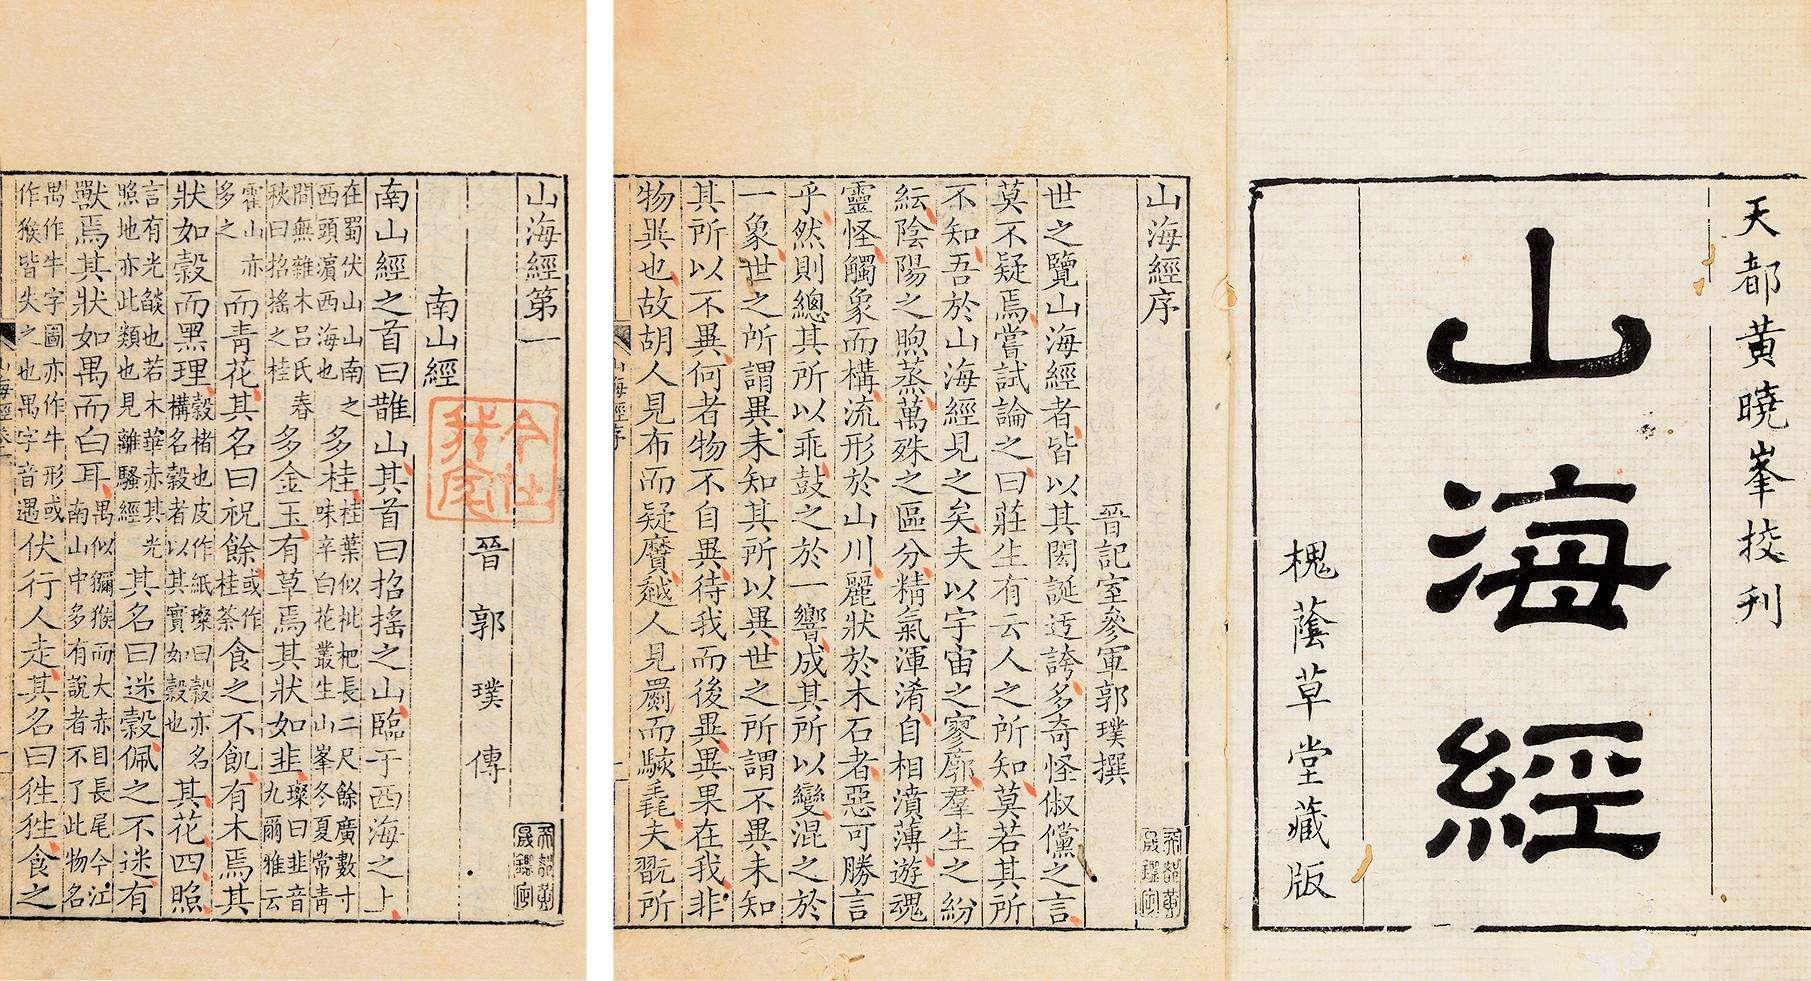 天都黃曉峯挍刊
山海經
槐蔭草堂藏版
山海經序
晉記室參軍郭璞撰
世之覽山海經者皆以其閎誕迃誇多奇怪俶儻之言
莫不疑焉嘗試論之曰莊生有云人之所知莫若其所
不知吾於山海經見之矣夫以宇宙之寥廓羣生之紛
紜陰陽之煦蒸萬殊之區分精氣渾淆自相濆薄遊魂
靈怪觸象而構流形於山川麗狀於木石者惡可勝言
乎然則總其所以乖鼓之於一響成其所以變混之於
一象世之所謂異未知其所以異世之所謂不異未知
其所以不異何者物不自異待我而後異異果在我非
物異也故胡人見布而疑黂越人見罽而駭毳夫翫所
山海經第一
晉郭璞傳
南山經
南山經之首曰䧿山其首曰招搖之山臨于西海之上
在蜀伏山山南之
西頭濱西海也
多桂
桂葉似枇杷長二尺餘廣數寸
味辛白花叢生山峯冬夏常青
間無雜木呂氏春
秋曰招搖之桂
多金玉有草焉其狀如韭
璨曰韭音
九爾雅云
霍山亦
多之
而青花其名曰祝餘
或作
桂荼
食之不飢有木焉其
狀如榖而黑理
榖楮也皮作紙璨曰榖亦名
構名榖者以其實如榖也
其花四照
言有光燄也若木華赤其光
照地亦此類也見離騷經
其名曰迷榖佩之不迷有
獸焉其狀如禺而白耳
禺似獼猴而大赤目長尾今江
南山中多有說者不了此物名
禺作牛字圖亦作牛形或
作猴皆失之也禺字音遇
伏行人走其名曰狌狌食之